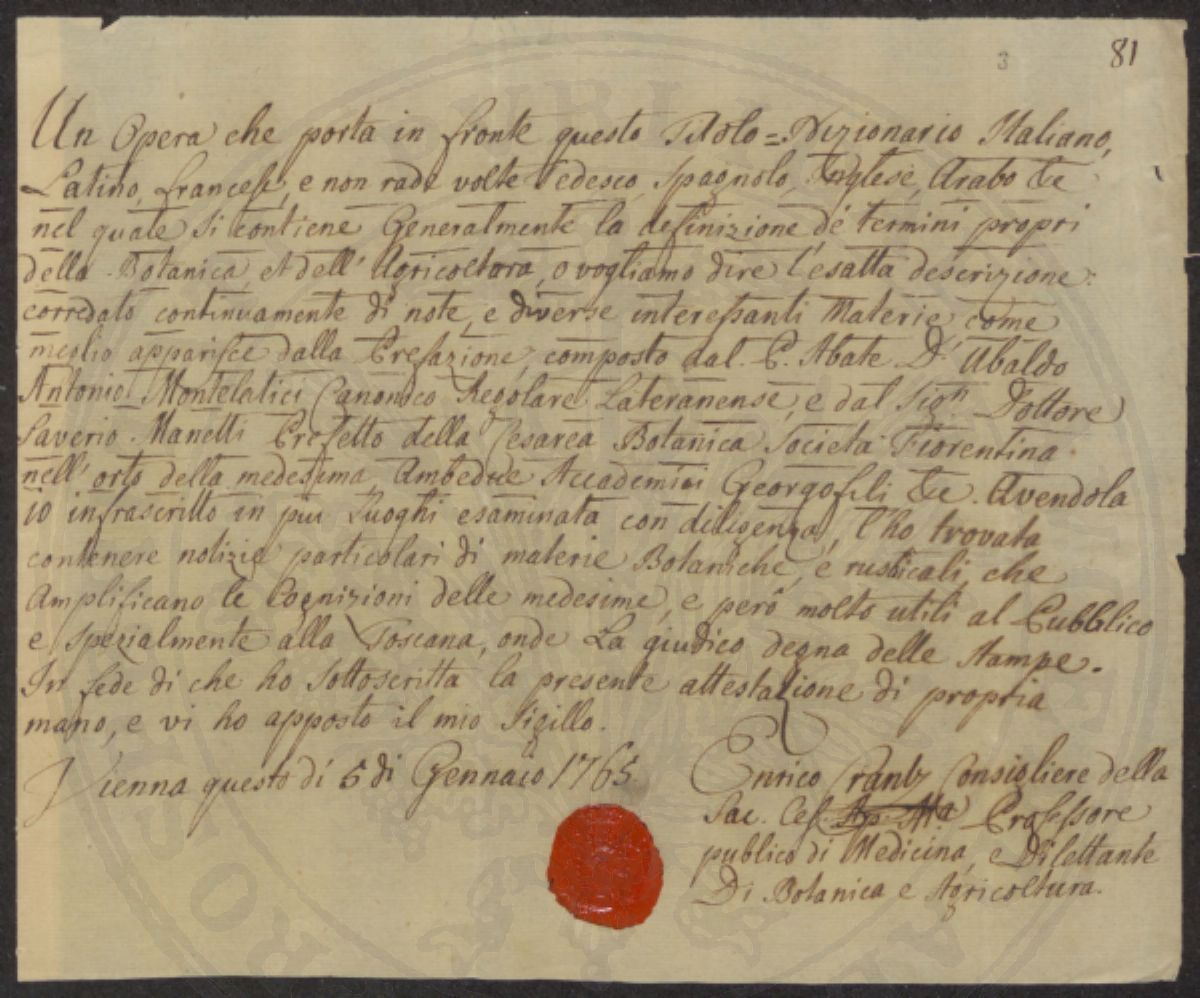 3
81
Un Opera che porta in fronte questo Titolo = Dizionario Italiano,
Latino, francese, e non rade volte Tedesco, Spagnolo, Inglese, Arabo &c
nel quale si contiene Generalmente la definizione de' termini propri
della Botanica, et dell' Agricoltura, o vogliamo dire l'esatta descrizione:
corredato continuamente di note, e diverse interessanti Materie come
meglio apparisce dalla Prefazione, composto dal P. Abate D. Ubaldo
Antonio Montelatici Canonico Regolare Lateranense, e dal Sign. Dottore
Saverio Manetti Prefetto della Cesarea Botanica Società Fiorentina
nell' orto della medesima Ambedue Accademici Georgofili &c. Avendola
io infrascritto in piu Luoghi esaminata con diligenza, l'ho trovata
contenere notizie particolari di materie Botaniche, e rusticali, che
Amplificano le Cognizioni delle medesime, e però molto utili al Pubblico
e spezialmente alla Toscana, onde La giudico degna delle stampe.
In fede di che ho sottoscritta la presente attestazione di propria
mano, e vi ho apposto il mio Sigillo.
Vienna questo dí 5 di Gennaio 1765
Enrico Crantz Consigliere della
Sac. Ces. Ap. Mtà Professore
publico di Medicina, e Dilettante
Di Botanica e Agricoltura.